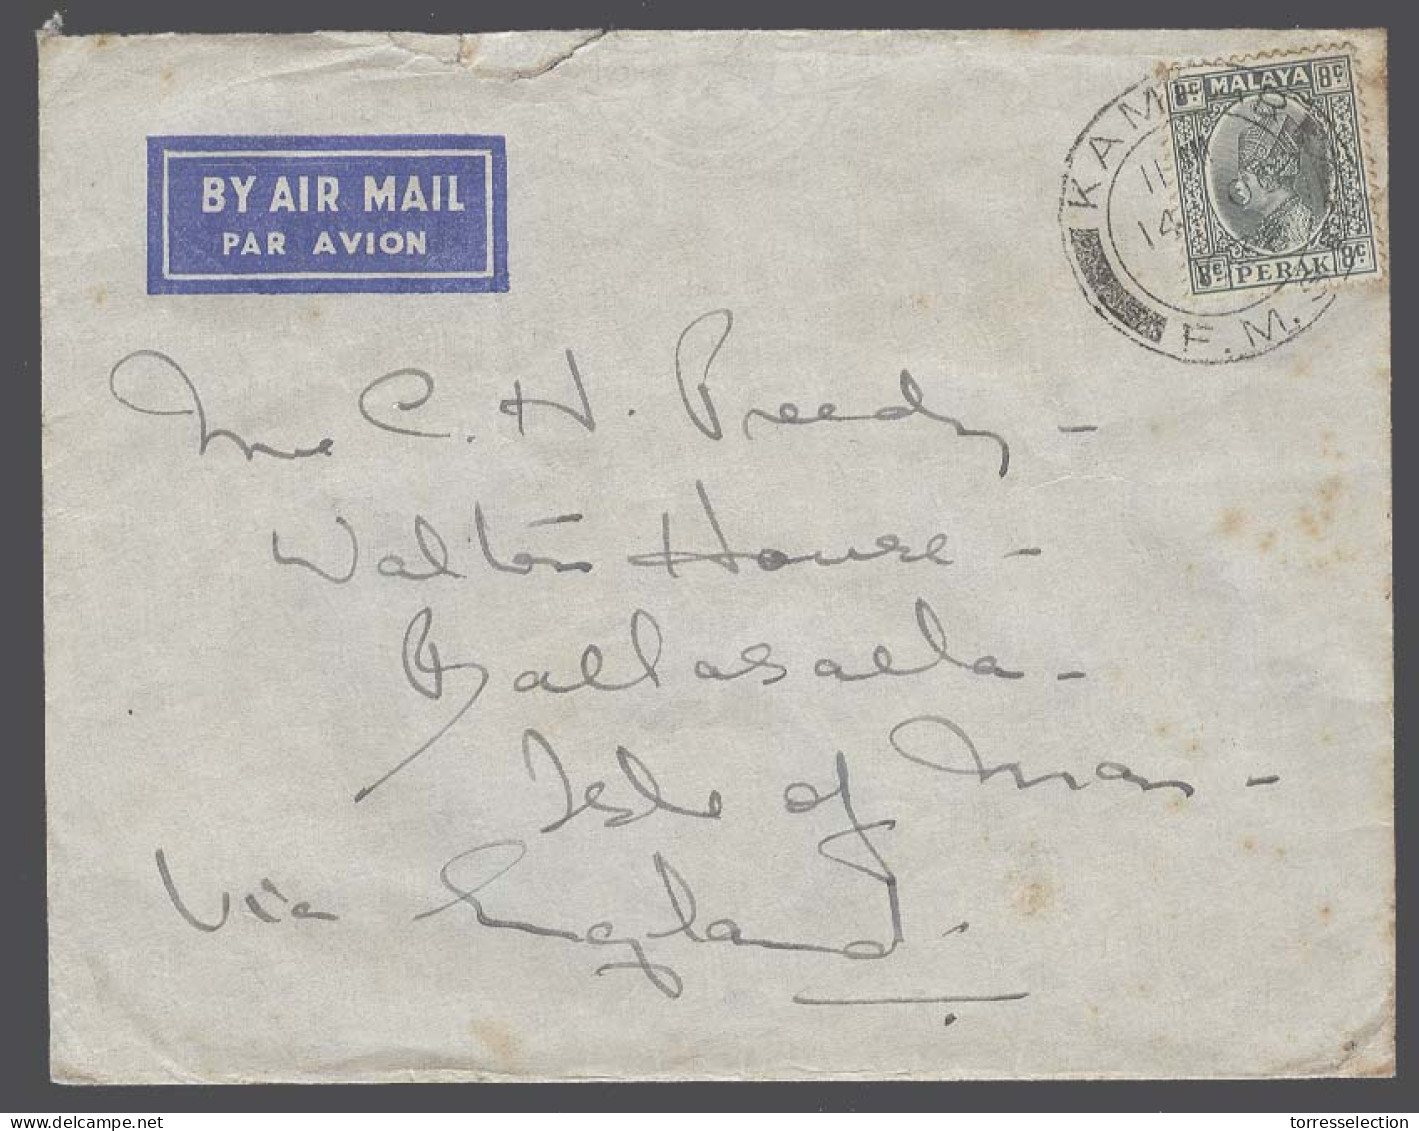 BY AIR MAIL
PAR AVION
8c MALAYA 8c
8c PERAK 8c
KAM
11
14
F.M.S
Mr C. H. Preedy -
Walton House -
Ballasalla -
Isle of Man -
Via England.
www.delcampe.net
torresselection